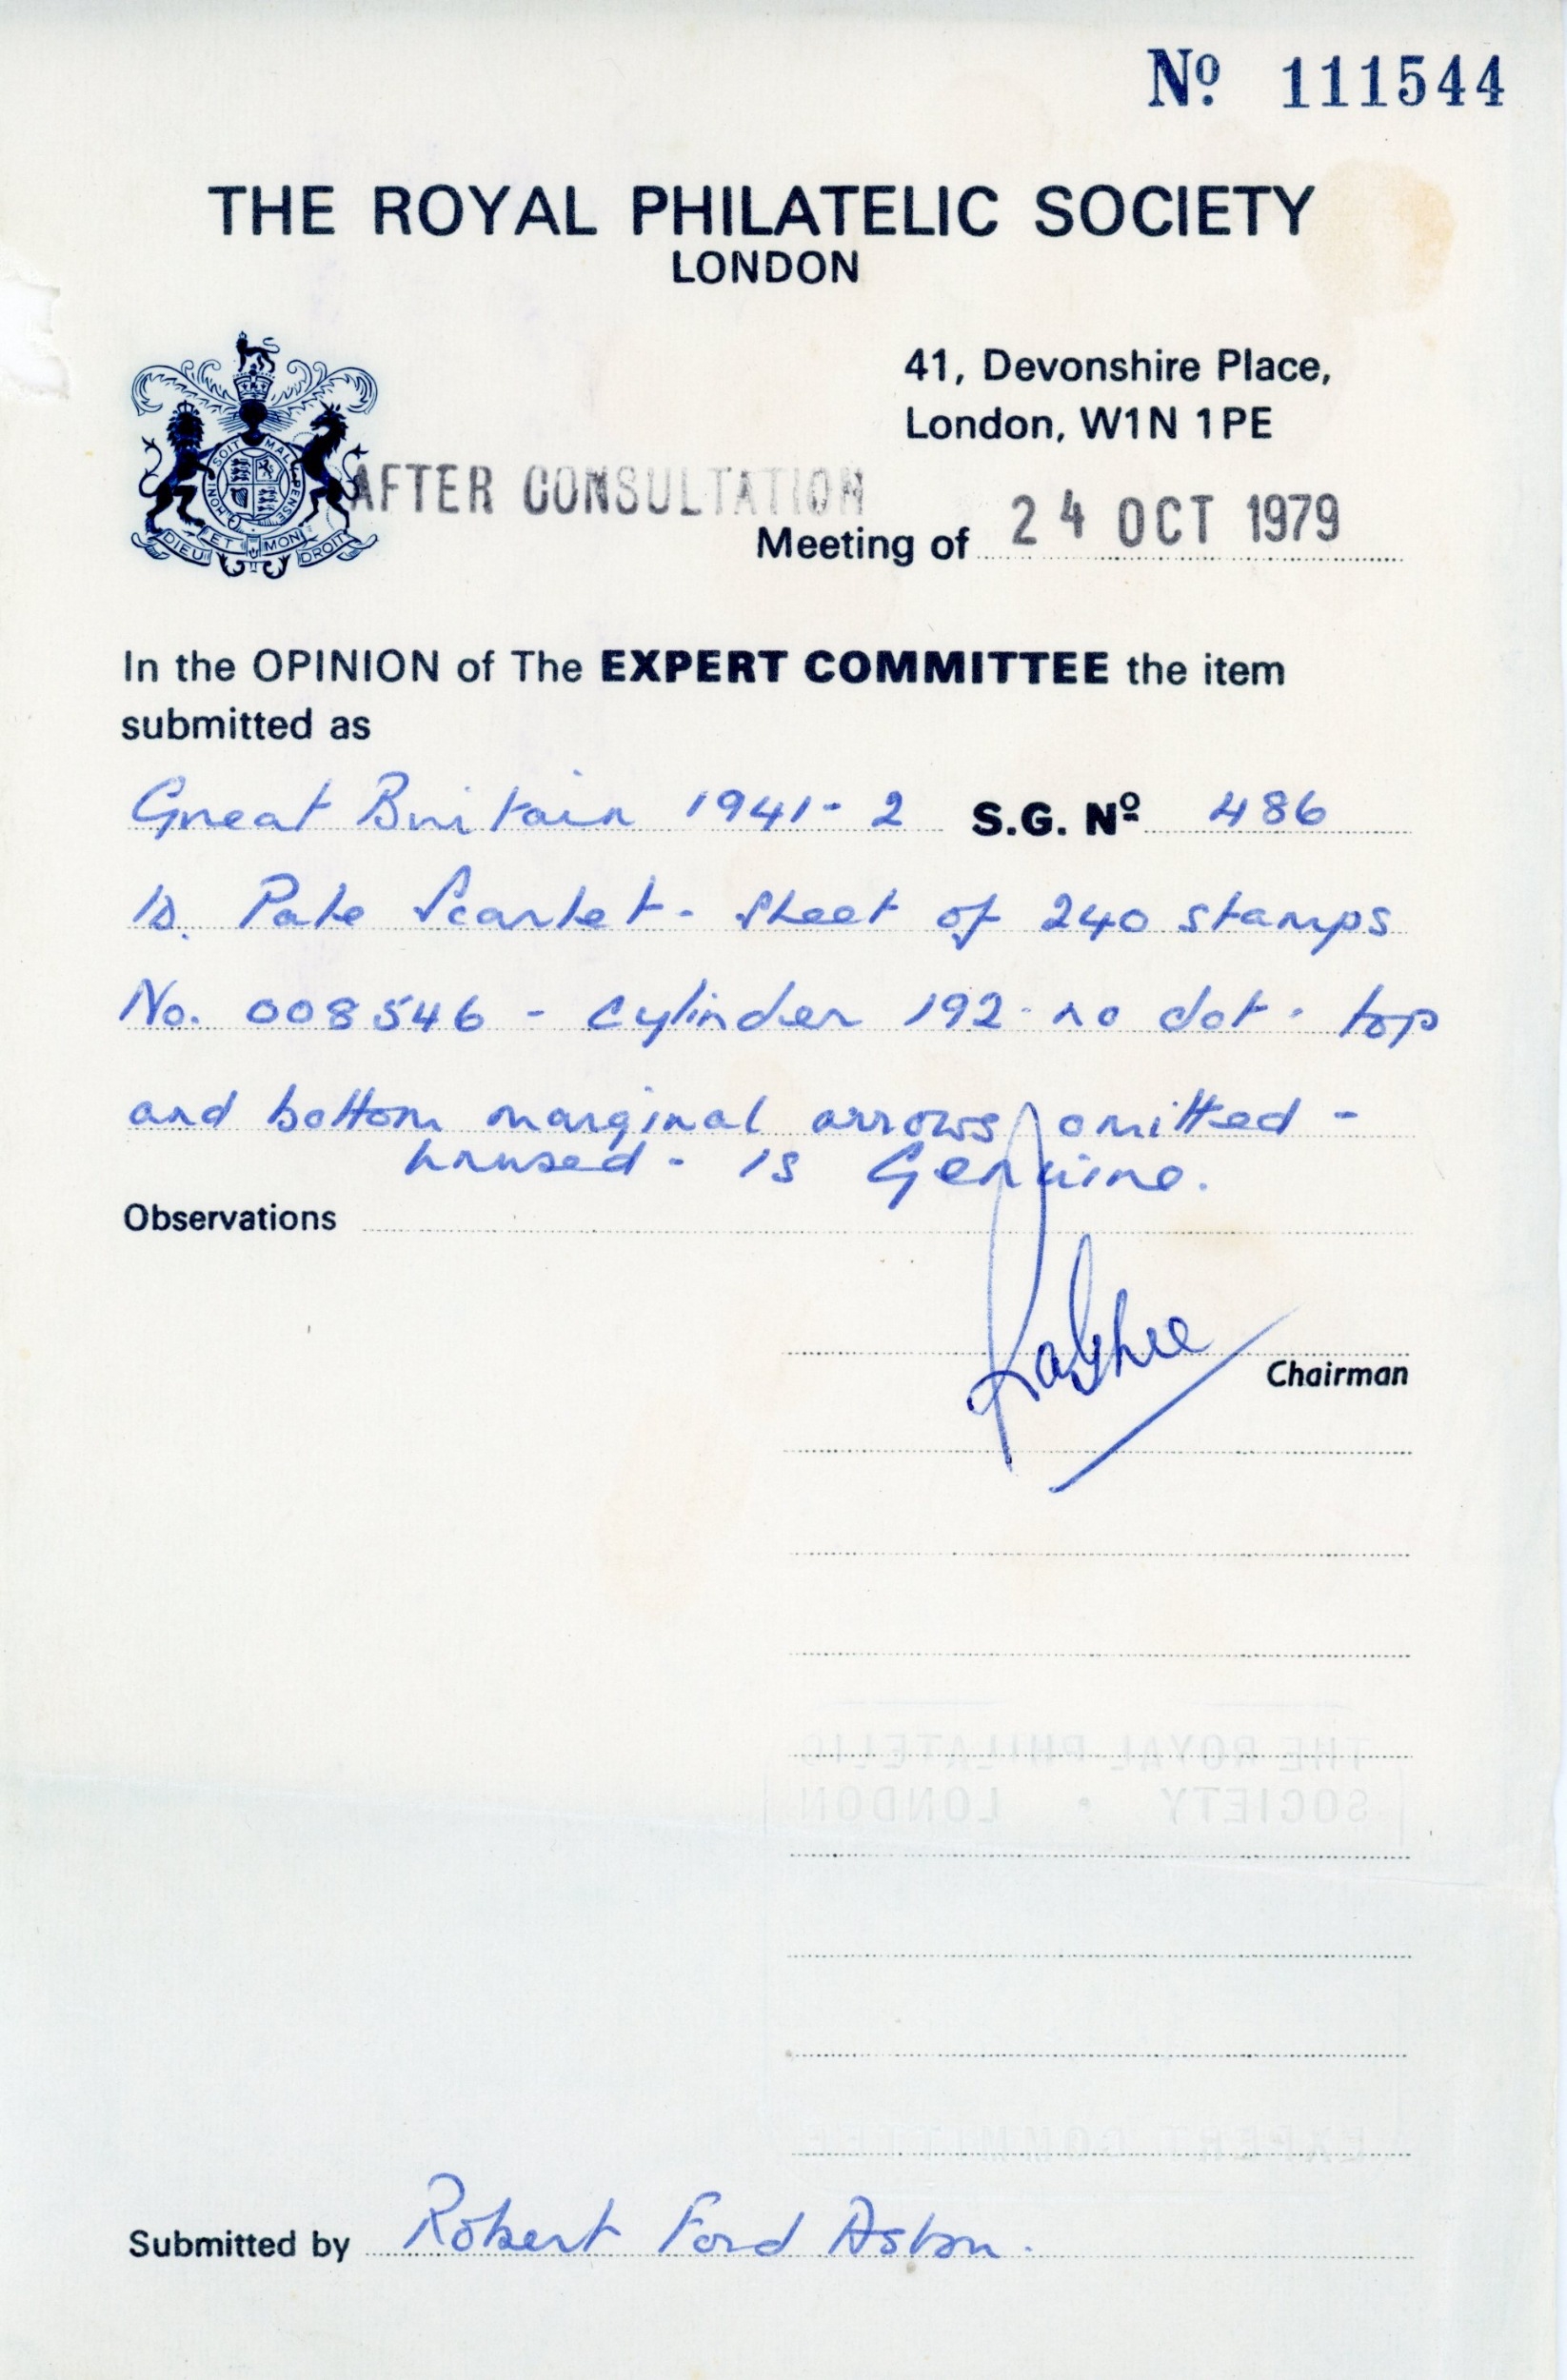 Nº 111544
THE ROYAL PHILATELIC SOCIETY
LONDON
41, Devonshire Place,
London, W1N 1PE
HONI SOIT QUI MAL Y PENSE
DIEU ET MON DROIT
AFTER CONSULTATION
Meeting of 24 OCT 1979
In the OPINION of The EXPERT COMMITTEE the item
submitted as
Great Britain 1941-2 S.G. Nº 486
1D. Pale Scarlet - Sheet of 240 stamps
No. 008546 - cylinder 192 - no dot - top
and bottom marginal arrows omitted -
unused - is Genuine.
Observations
Chairman
THE ROYAL PHILATELIC
SOCIETY • LONDON
EXPERT COMMITTEE
Submitted by Robert Ford Aston.